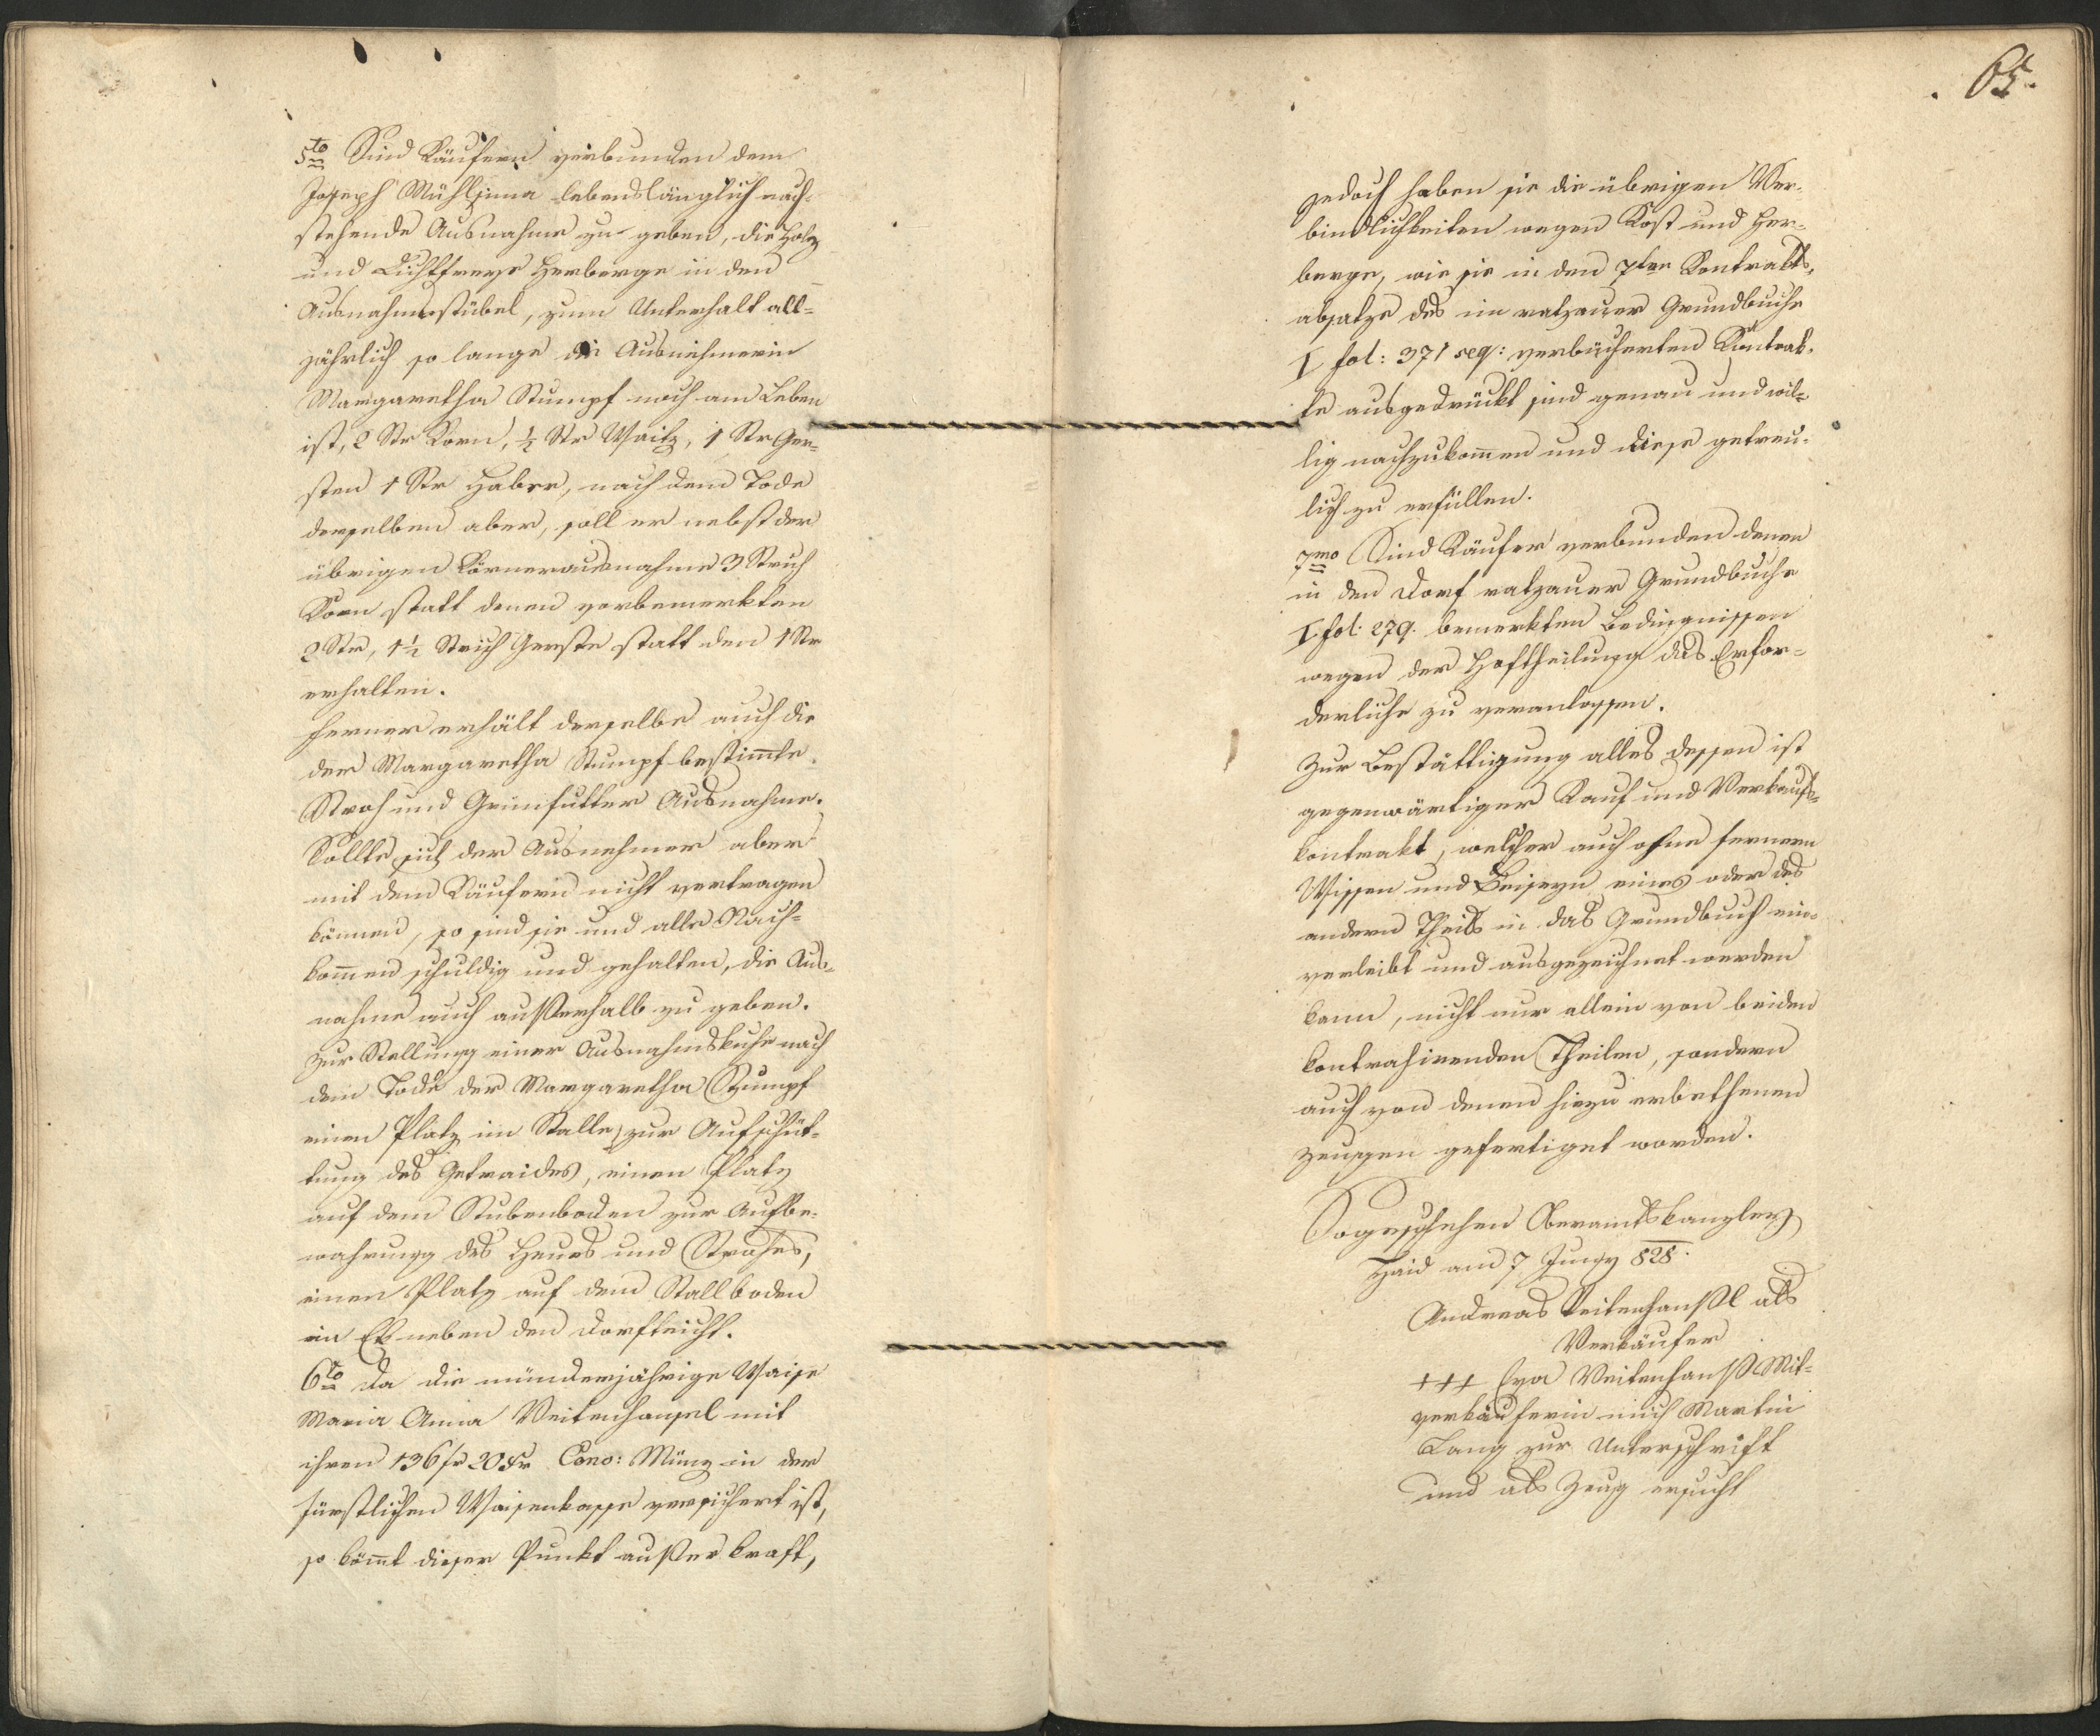 65.
5to Sind Käufern verbunden dem
Joseph Mühljinna lebenslänglich nach-
stehende Ausnahme zu geben, die Holz
und Lichtfreye Herberge in den
Ausnahmsstübel, zum Unterhalt all-
jährlich so lange die Ausnehmerin
Margaretha Stumpf noch am Leben
ist, 2 Str Korn, ½ Str Waitz, 1 Str Ger-
sten 1 Str Haber, nach dem Tode
derselben aber, soll er nebst der
übrigen Körnerausnahme 3 Strich
Korn statt denen vorbemerkten
2 Str, 1½ Strich Gerste statt den 1 Str
erhalten.
Ferner erhält derselbe auch die
der Margaretha Stumpf bestimmte
Stroh und Grünfutter Ausnahme.
Sollte sich der Ausnehmer aber
mit dem Käufern nicht vertragen
können, so sind sie und alle Nach-
kommen schuldig und gehalten, die Aus-
nahme auch außerhalb zu geben.
Zur Stellung einer Ausnahmskuhe nach
dem Tode der Margaretha Stumpf
einen Platz im Stalle, zur Aufschüt-
tung des Getraides, einen Platz
auf dem Stubenboden zur Aufbe-
wahrung des Heues und Strohes,
einen Platz auf dem Stallboden
im Ek neben den Dorfteicht.
6to Da die minderjährige Waise
Maria Anna Veitenhansel mit
ihren 136 fr 20 xr Conv: Münz in der
fürstlichen Waisenkasse versichert ist,
so kömmt dieser Punkt außer Kraft,
Jedoch haben sie die übrigen Ver-
bindlichkeiten wegen Kost und Her-
berge, wie sie in den 7ten Kontrakts-
absatze des im ratzauer Grundbuche
I fol: 371 seq: verbücherten Kontrak-
te ausgedrückt sind genau und wil-
lig nachzukommen und diese getreu-
lich zu erfüllen.
7mo Sind Käufer verbunden denen
in den Dorf ratzauer Grundbuche
I fol: 279. bemerkten Bedingnissen
wegen der Hoftheilung das Erfor-
derliche zu veranlassen.
Zur Bestättigung alles dessen ist
gegenwärtiger Kauf und Verkaufs-
kontrakt, welcher auch ohne fernern
Wissen und Beiseyn eines oder des
andern Theils in das Grundbuch ein-
verleibt und ausgezeichnet werden
kann, nicht nur allein von beiden
kontrahirenden Theilen, sondern
auch von denen hiezu erbethenen
Zeugen gefertiget worden.
So geschehen Oberamtskanzley
Haid am 7 Juny 828.
Andreas Veitenhansl als
Verkäufer
+++ Eva Veitenhansl Mit-
verkäuferin mich Martin
Lang zur Unterschrift
und als Zeug ersucht